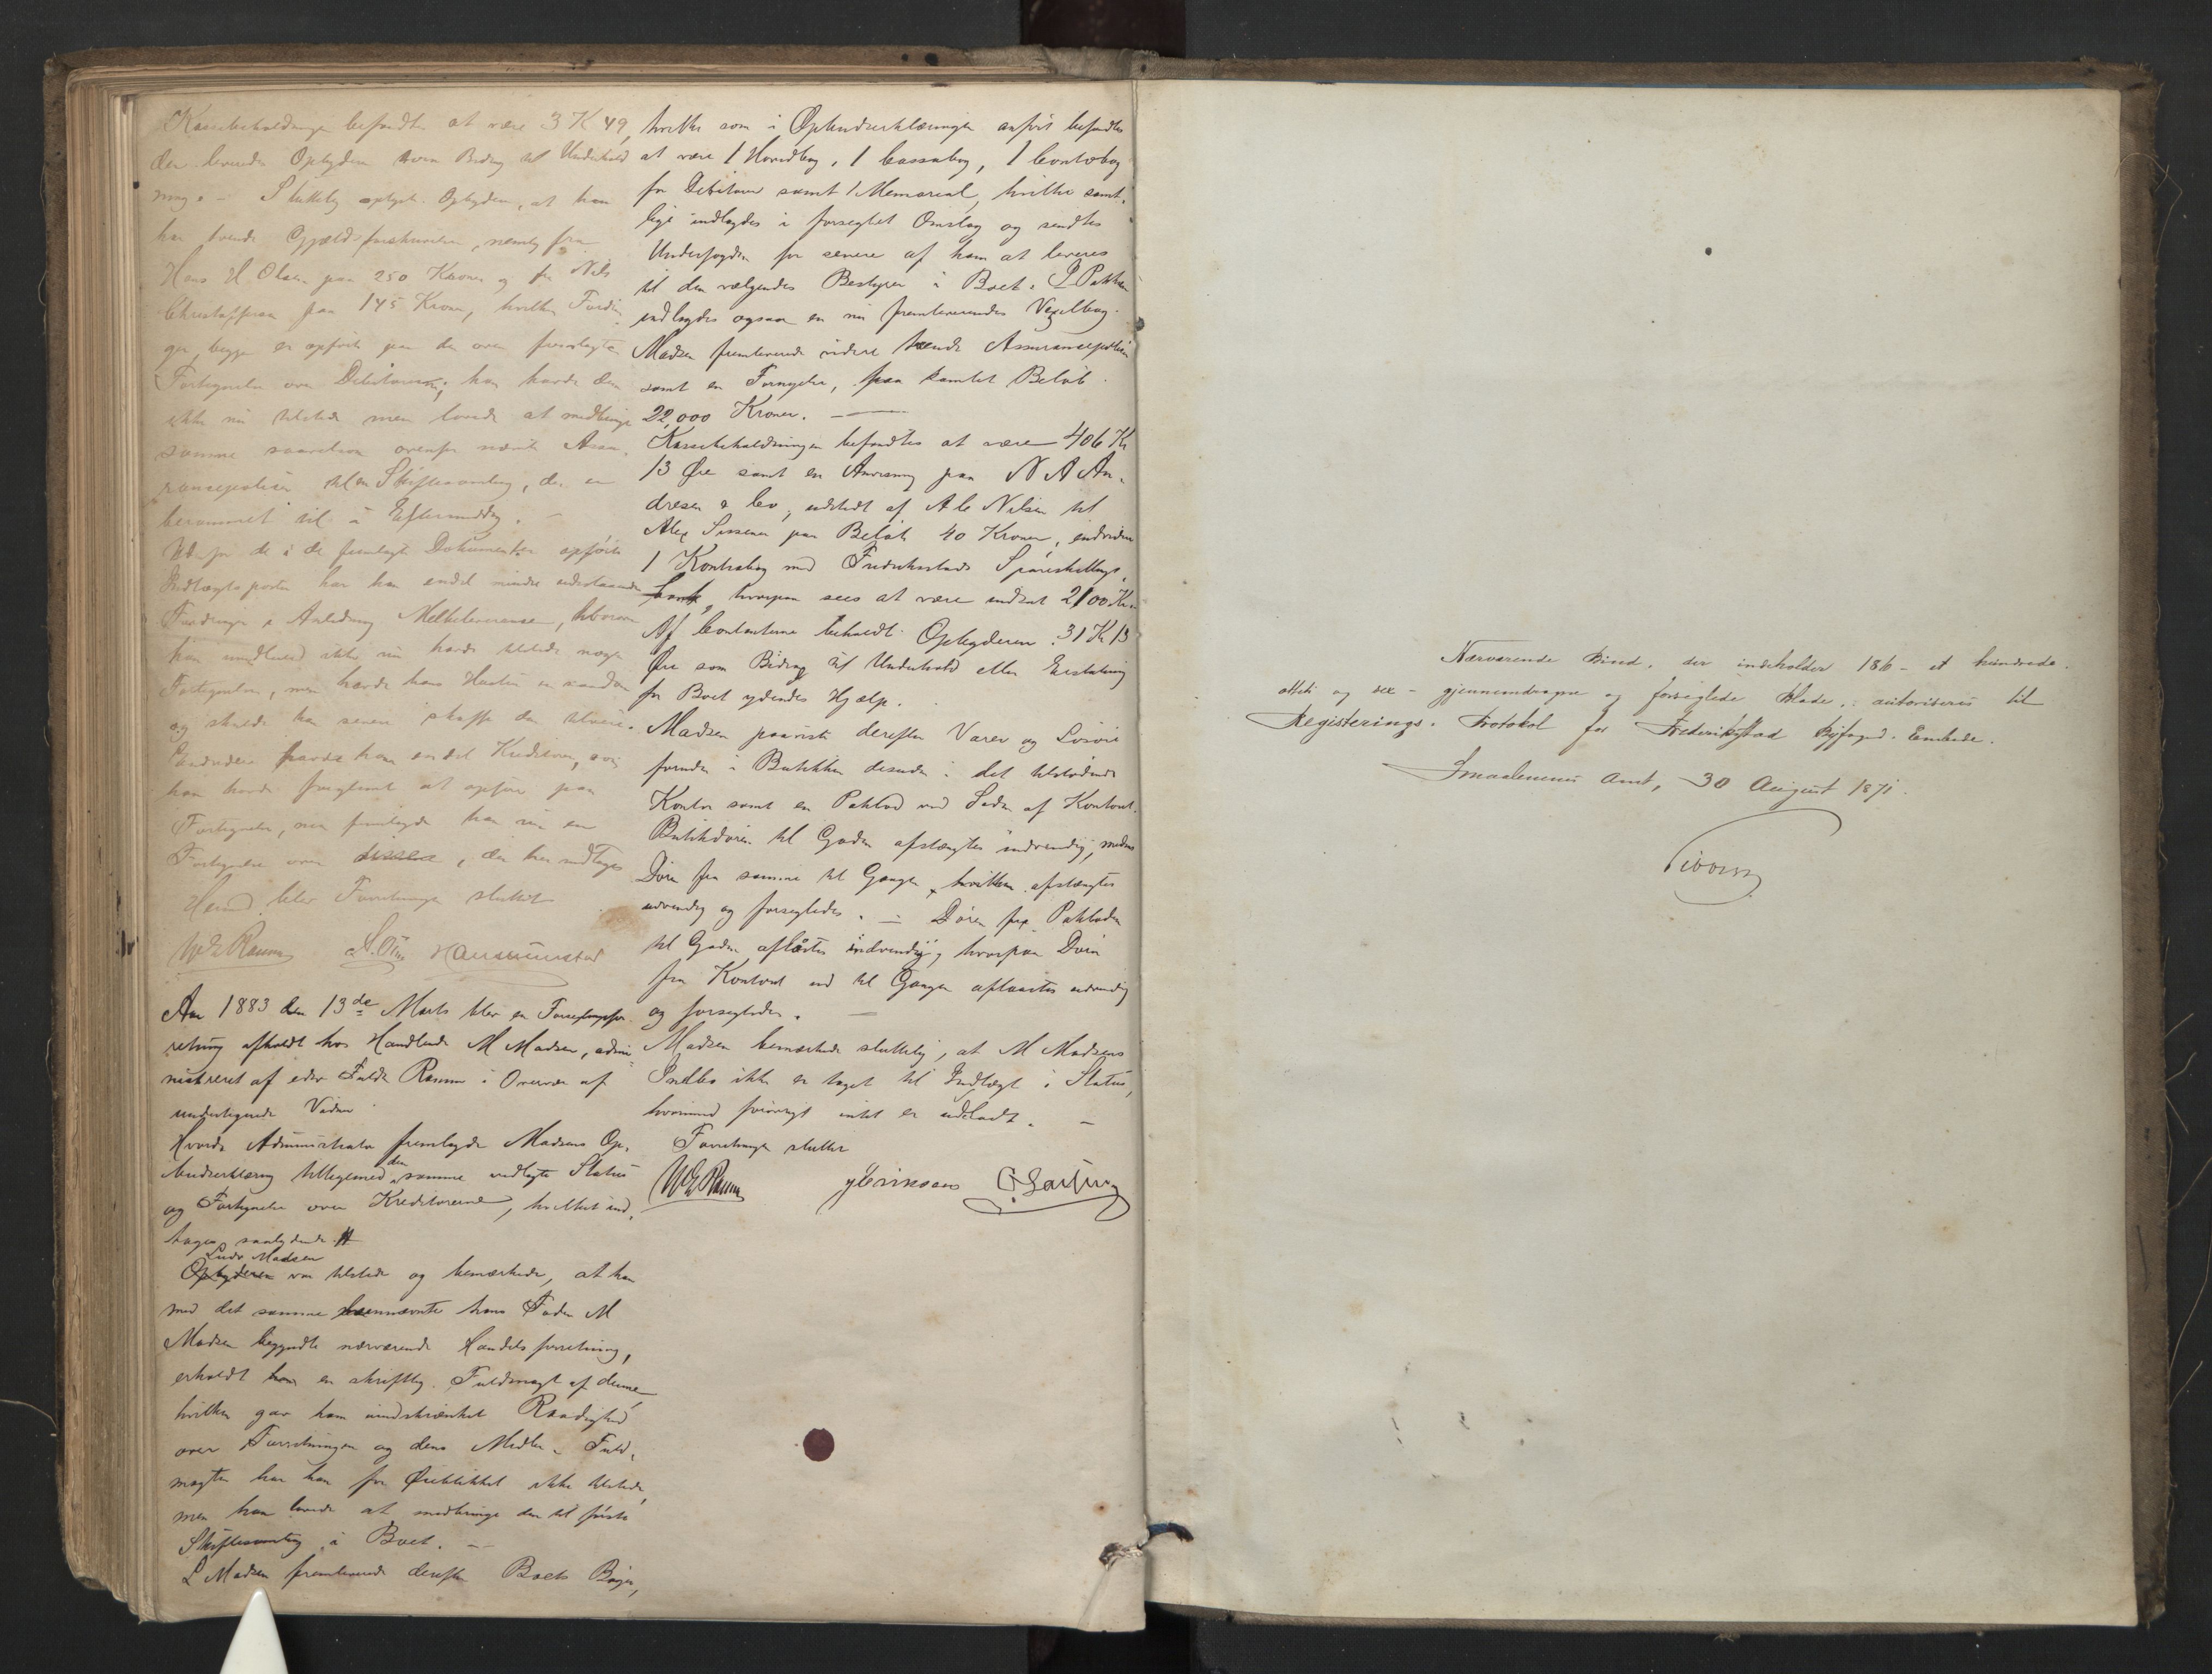 Kassebeholdningen befandtes at være 3 K 49,
den levende Opbyden som Bidrag til Underhold
ning. – Sluttelig oplyste Opbyden, at han
har tvende Gjældsforskrivelser, nemlig fra
Hans H Olsen paa 250 Kroner og fra Nils
Christoffersen paa 145 Kroner, hvilke Fordrin
ger begge er opført paa den oven fremlagte
Fortegnelse over Debitorerne; han havde dem
ikke nu tilstede men lovede at medbringe
samme saavelsom ovenfor nævnte Assu-
rancepolicer til en Skiftesamling, der er
berammet til i Eftermiddag. –
Udenfor de i de fremlagte Dokumenter opførte
Indtægtsposter har han endel mindre udestaaende
Fordringer i Anledning Melkeleverance, hvorom
han imidlertid ikke nu havde tilstede nogen
Fortegnelse, men havde hans Hustru en saadan
og skulde han senere skaffe den tilveie.
Endvidere havde han endel Kreditorer, som
han havde forglemt at opføre paa
Fortegnelsen, men fremlagde han nu en
Fortegnelse over disse, der her indtages
Hermed blev Forretningen sluttet
An 1883 den 13de Marts blev en Forseglingsfor-
retning afholdt hos Handlende M Madsen, admi-
nistreret af edsv Fuldm Ramm i Overvær af
undertegnede Vidner
Hvorda Administrator fremlagde Madsens Op-
budserklæring tilligemed den samme vedlagte Status
og Fortegnelse over Kreditorerne, hvilket ind-
tages saalydende #
Ludv Madsen
Opbyderen var tilstede og bemærkede, at han
med det samme hans Fader M
Madsen begyndte nærværende Handelsforretning,
erholdt han en skriftlig Fuldmagt af denne
hvilken gav ham uindskrænket Raadighed
over Forretningen og dens Midler. Fuld-
magten har han for Øieblikket ikke tilstede,
men han lovede at medbringe den til første
Skiftesamling i Boet. –
L Madsen fremleverede derefter Boets Bøger,
hvilke som i Opbudserklæringen anført befandtes
at være 1 Hovedbog, 1 Cassabog, 1 Contobog
for Debitorer samt 1 Memorial, hvilke samt-
lige indlagdes i forseglet Omslag og sendtes
Underfogden for senere af ham at leveres
til den vælgendes Bestyrer i Boet. I Pakken
indlagdes ogsaa en nu fremleverendes Vexelbog.
Madsen fremleverede videre tvende Assurancepolicer
samt en Fornyelse, paa samlet Beløb
22,000 Kroner. —
Kassebeholdningen befandtes at være 406 Kr
13 Øre samt en Anvisning paa N A An-
dresen & Co, udstedt af A C Nilsen til
Alex Sissener paa Beløb 40 Kroner, endvidere
1 Kontrabog med Fredrikstads Spareskillings-
bank, hvorpaa sees at være indsat 2100 Kr.
Af Contanterne beholdt Opbyderen 31 Kr 13
Øre som Bidrag til Underhold eller Erstatning
for Boet ydendes Hjælp.
Madsen paaviste derefter Varer og Løsøre
forinden i Butikken desuden i det tilstødende
Kontor samt en Pakbod ved Siden af Kontoret.
Butikdøren til Gaden afstængtes indvendig, medens
Døren fra samme til Gangen hvilken afstængtes
udvendig og forsegledes. – Døren fra Pakboden
til Gaden aflåstes indvendig, hvorpaa Døren
fra Kontoret ud til Gangen aflaastes udvendig
og forsegledes. —
Madsen bemærkede sluttelig, at M Madsens
Indbo ikke er taget til Indtægt i Status,
hvorimod forøvrigt intet er udeladt. –
Forretningen sluttet
Nærværende Bind, der indeholder 186 – et hundrede
otteti og sex – gjennemdragne og forseglede Blade, autoriseres til
Registerings-Protokol for Frederikstad Byfoged-Embede.
Smaalenenes Amt, 30 August 1871.